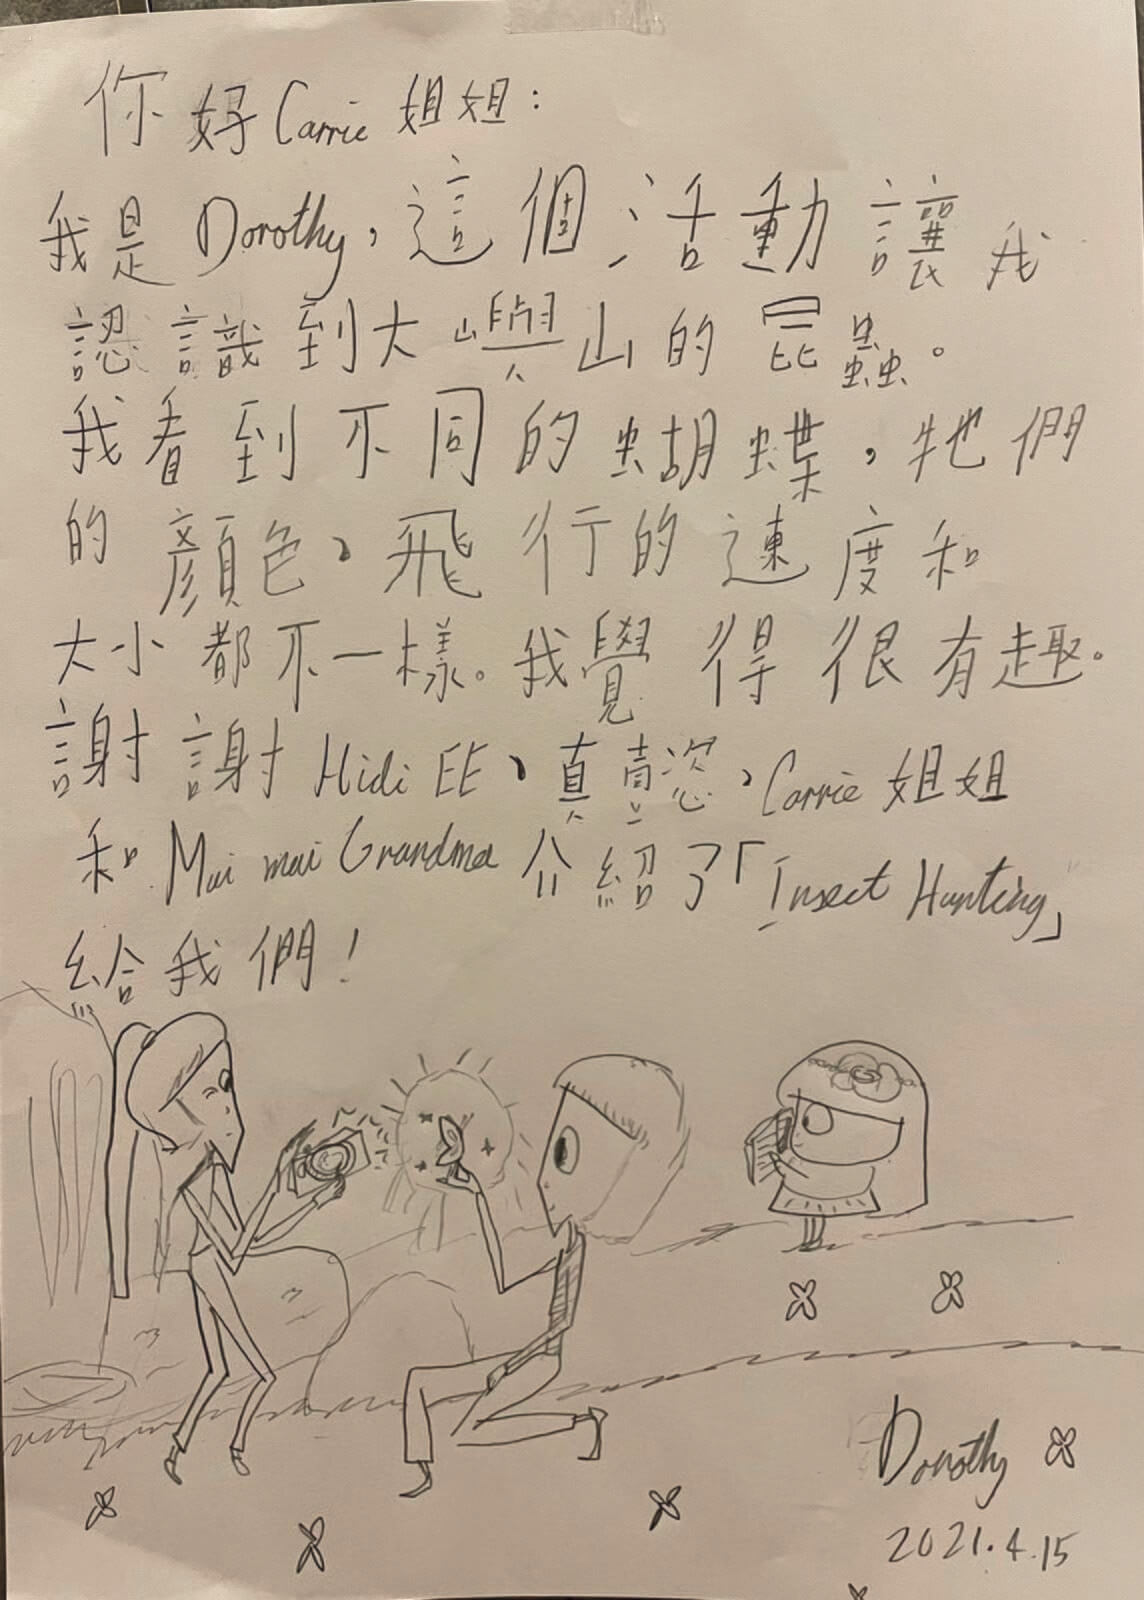 你好Carrie 姐姐：
我是Dorothy，這個活動讓我
認識到大嶼山的昆蟲。
我看到不同的蝴蝶，牠們
的顏色、飛行的速度和
大小都不一樣。我覺得很有趣。
謝謝 Hidi EE、真真恣、Carrie 姐姐
和 Mui mui Grandma 介紹了「Insect Hunting」
給我們！
Dorothy
2021.4.15